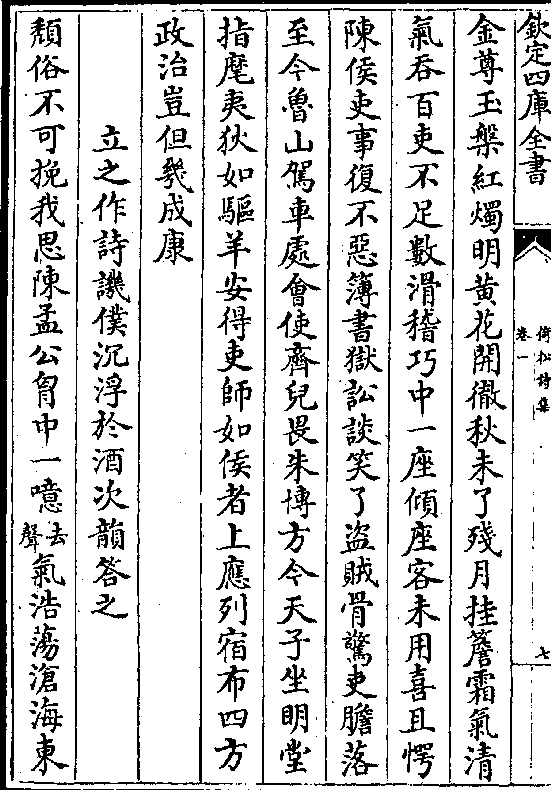 欽定四庫全書
倚松詩集
卷一
七
金尊玉槃紅燭明黄花開徹秋未了殘月挂簷霜氣清
氣吞百吏不足數滑稽巧中一座傾座客未用喜且愕
陳侯吏事復不惡簿書獄訟談笑了盜賊骨驚吏膽落
至今魯山駕車處會使齊兒畏朱博方今天子坐明堂
指麾夷狄如驅羊安得吏師如侯者上應列宿布四方
政治豈但㡬成康
立之作詩譏僕沉浮於酒次韻答之
頽俗不可挽我思陳孟公胷中一噫去聲氣浩蕩滄海東